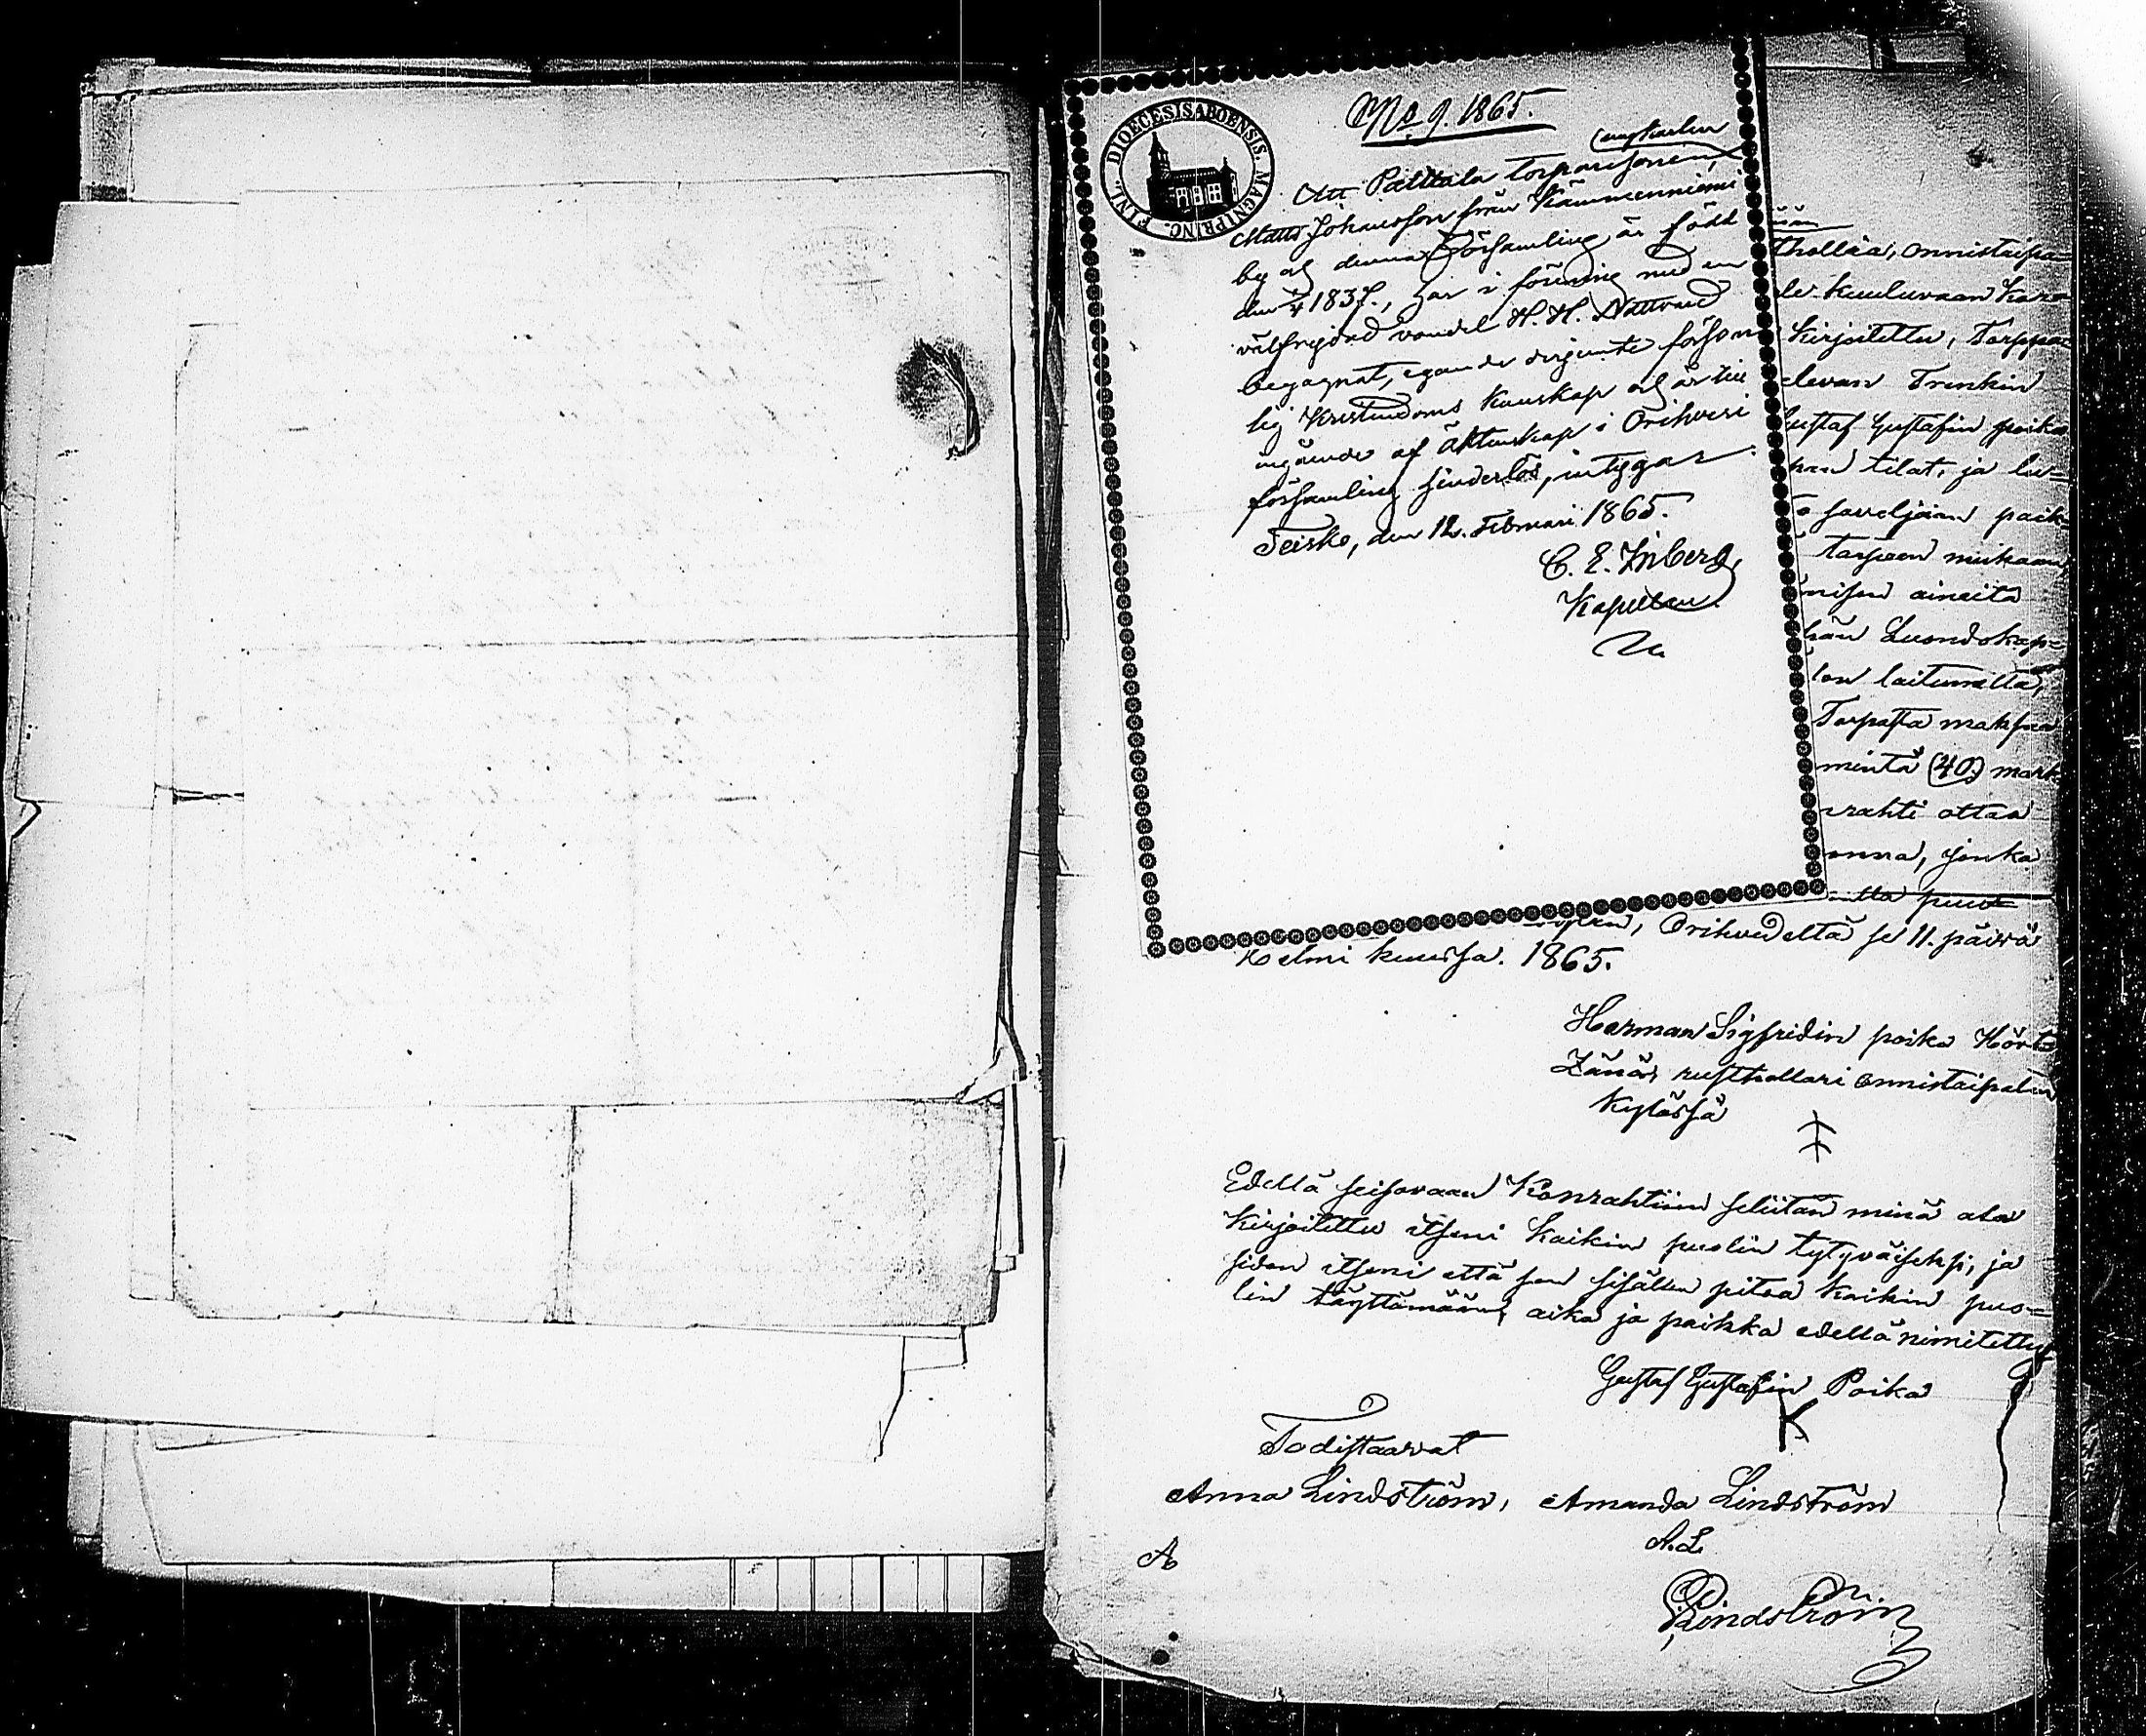 DIOECESIS ABOENSIS. MAGNI PRINC. FINL.
No 9. 1865.
ungkarlen
Att Pälttala torparesonen,
Matts Johansson från Kämmenniemi
by af denna Församling är född
den 1837., har i förening med en
välfrejdad vandel H. H. Nattvard
begagnat, egande dessjemte försvar
lig Kristendoms kunskap och är till
ingående af äktenskap i Orihvesi
församling hinderlös, intygar
Teisko, den 12. Februari 1865.
C. E. Inberg
Kapellan.
thollia, Onnistaipa=
le kuuluvaan
Kirjoitettu, Torppa
elevan Trenkin
Gustaf Gustafin poika
han tilat, ja lu=
o saveljään paik
tarpeen mukaan
misen aineita
hän Luondokap=
lon laitumella,
Torpasta maksaa
mintä (40) mark
rahti ottaa
onna, jonka
Orihvedeltä se 11. päivä
Helmi kuussa. 1865.
Herman Sigfridin poika Hört
Zänäs rusthollari Onnistaipalen
Kylässä
Edellä seisovaan Konrahtiin seliitän minä ala
kirjoitettu itseni kaikin puolin tytyväiseksi, ja
sidon itseni että sen sisällen pitoa kaikin puo=
lin täyttämään, aika ja paikka edellä nimitetty
Gustaf Gustafin Poika
K
Todistaavat
Anna Lindström, Amanda Lindström
A. L.
A
Lindström